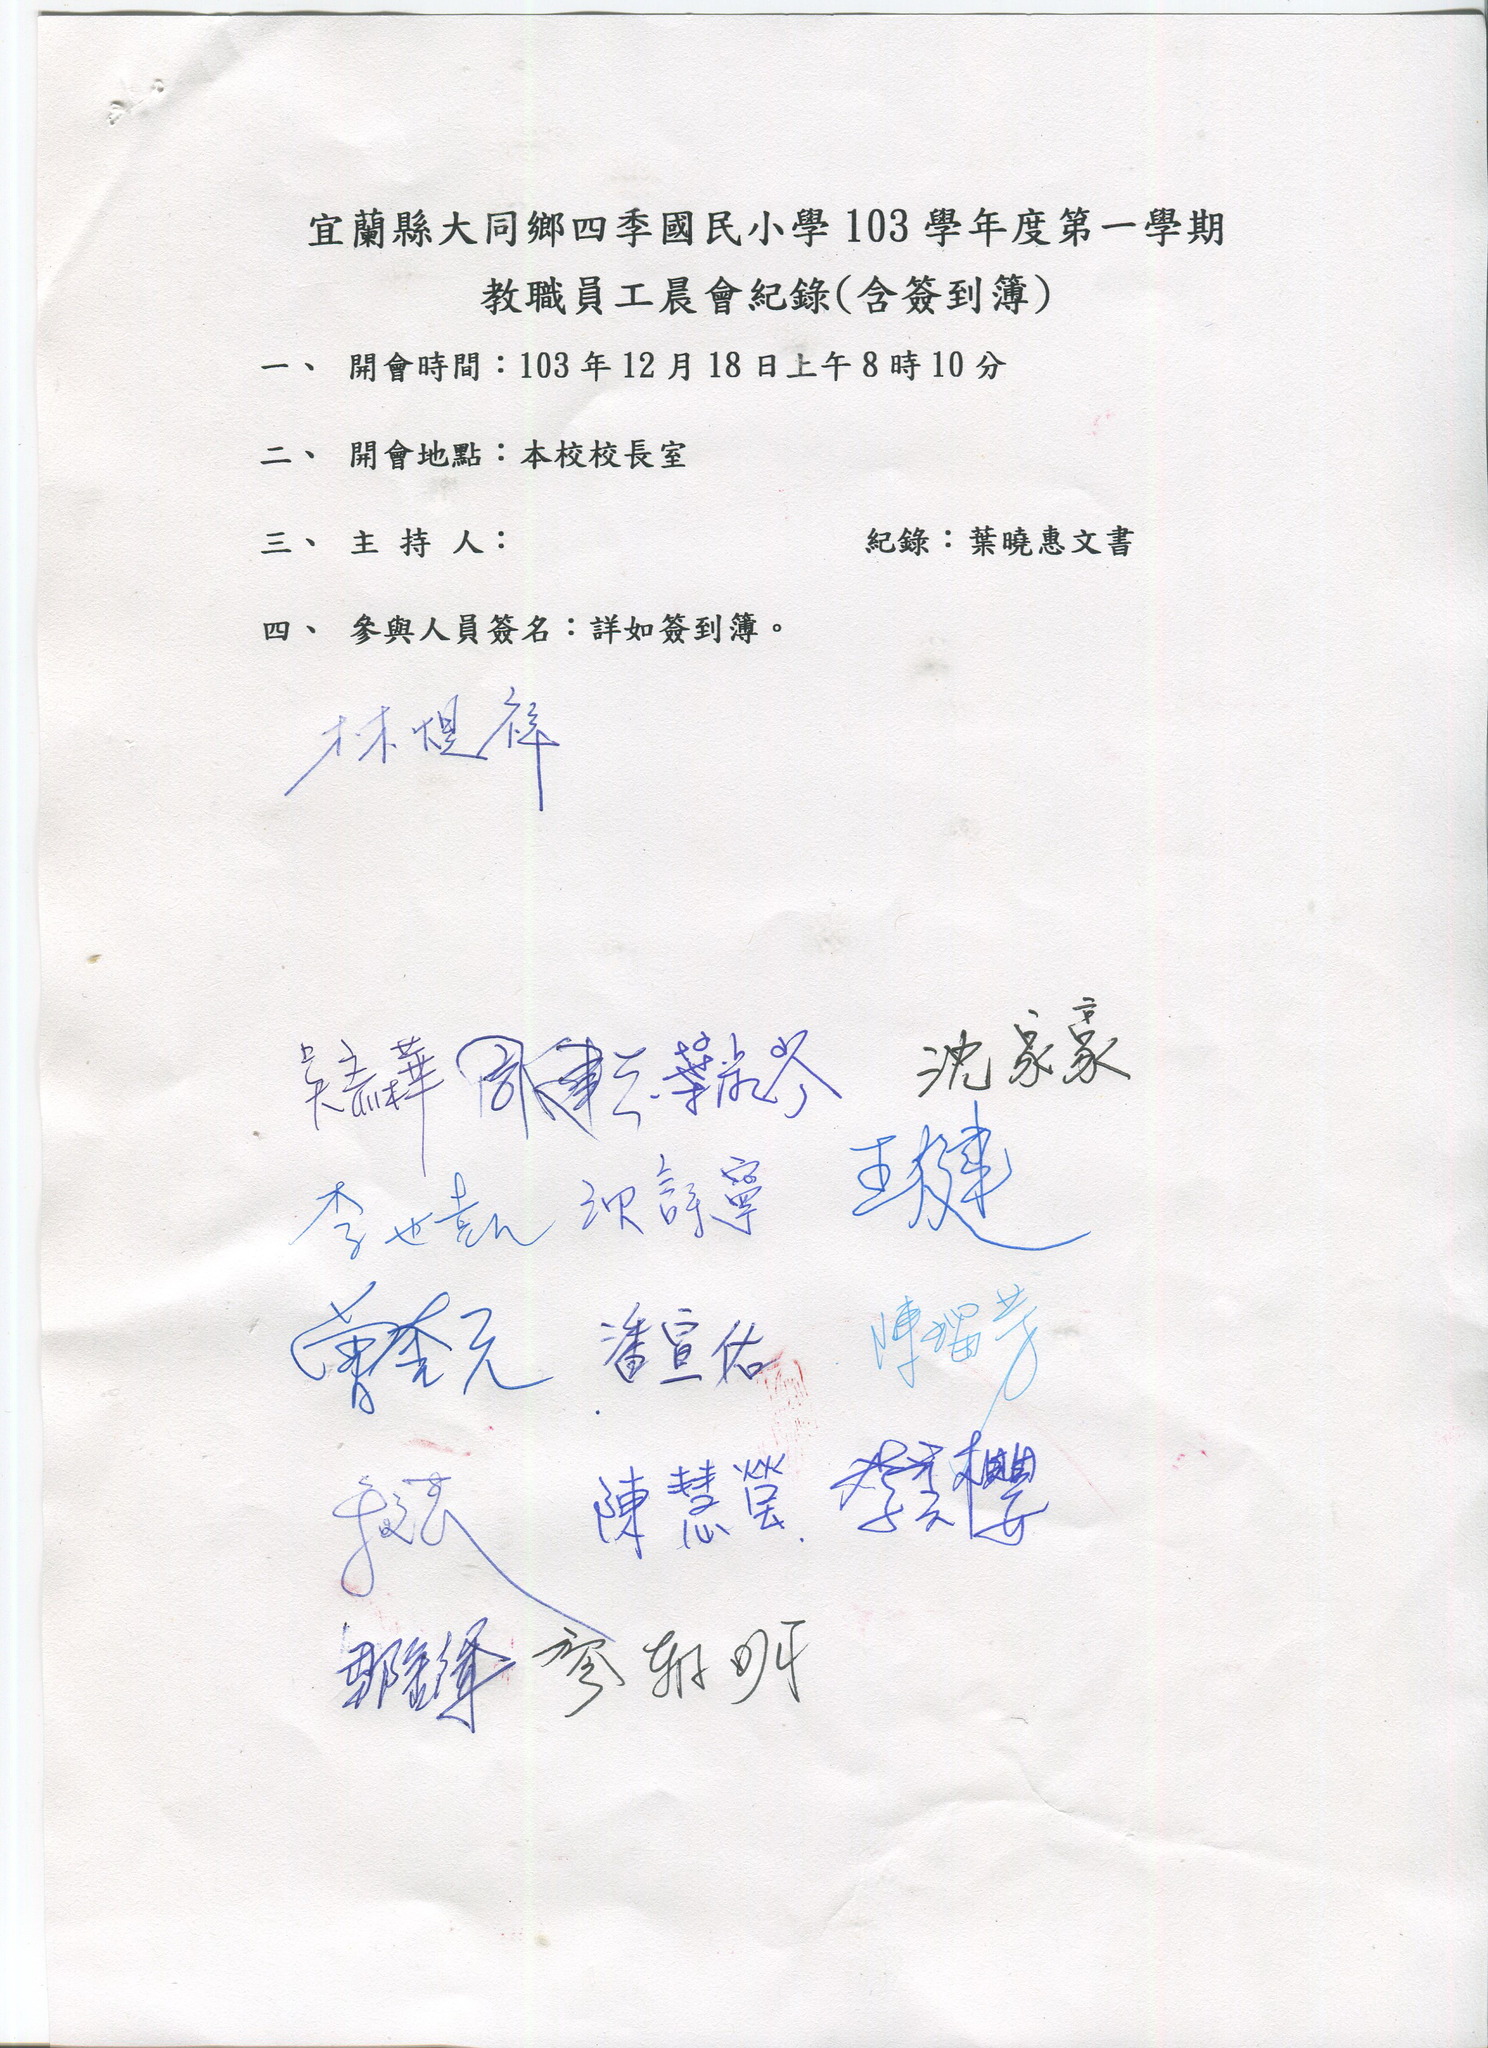 宜蘭縣大同鄉四季國民小學 103 學年度第一學期
教職員工晨會紀錄(含簽到簿)
一、 開會時間：103 年 12 月 18 日上午 8 時 10 分
二、 開會地點：本校校長室
三、 主 持 人： 紀錄：葉曉惠文書
四、 參與人員簽名：詳如簽到簿。
林焜祥
吳嘉樺 沈家豪
李世凱 王健
曾奎元 潘宣佑 陳瑙芳
陳慧瑩
廖朝明